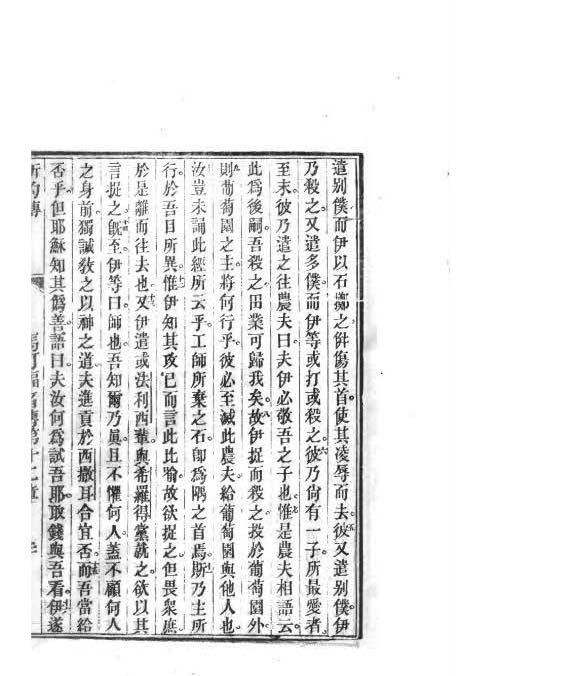 遣別僕而伊以石擲之併傷其首使其凌辱而去彼又遣別僕伊
乃殺之又遣多僕而伊等或打或殺之彼乃尙有一子所最愛者
至末彼乃遣之往農夫曰夫伊必敬吾之子也惟是農夫相語云
此爲後嗣吾殺之田業可歸我矣故伊捉而殺之投於葡萄園外
則葡萄園之主將何行乎彼必至滅此農夫給葡萄園與他人也
汝豈未誦此經所云乎工師所棄之石卽爲隅之首焉斯乃主所
行於吾目所異惟伊知其攻己而言此比喻故欲捉之但畏衆庶
於是離而往去也又伊遣或法利西輩與希羅得黨就之欲以其
言捉之旣至伊等曰師也吾知爾乃眞且不懼何人蓋不顧何人
之身前獨誠教之以神之道夫進貢於西撒耳合宜否而吾當給
否乎但耶穌知其僞善語曰夫汝何爲試吾耶取錢與吾看伊遂